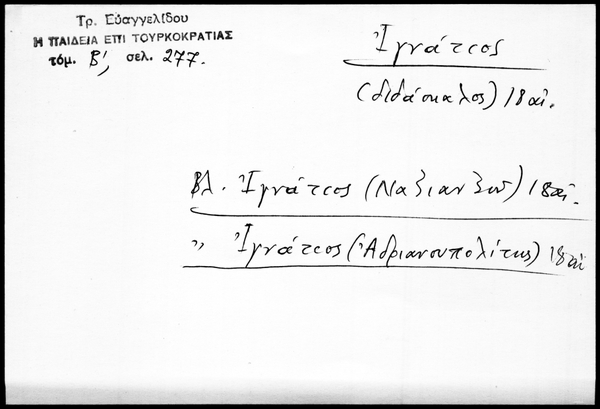 Τρ. Εὐαγγελίδου
Η ΠΑΙΔΕΙΑ ΕΠΙ ΤΟΥΡΚΟΚΡΑΤΙΑΣ
τόμ. Β', σελ. 277.
Ἰγνάτιος
(διδάσκαλος) 18 αἰ.
Βλ. Ἰγνάτιος (Ναζιανζοῦ) 18 αἰ.
" Ἰγνάτιος (Ἀδριανουπολίτης) 18 αἰ